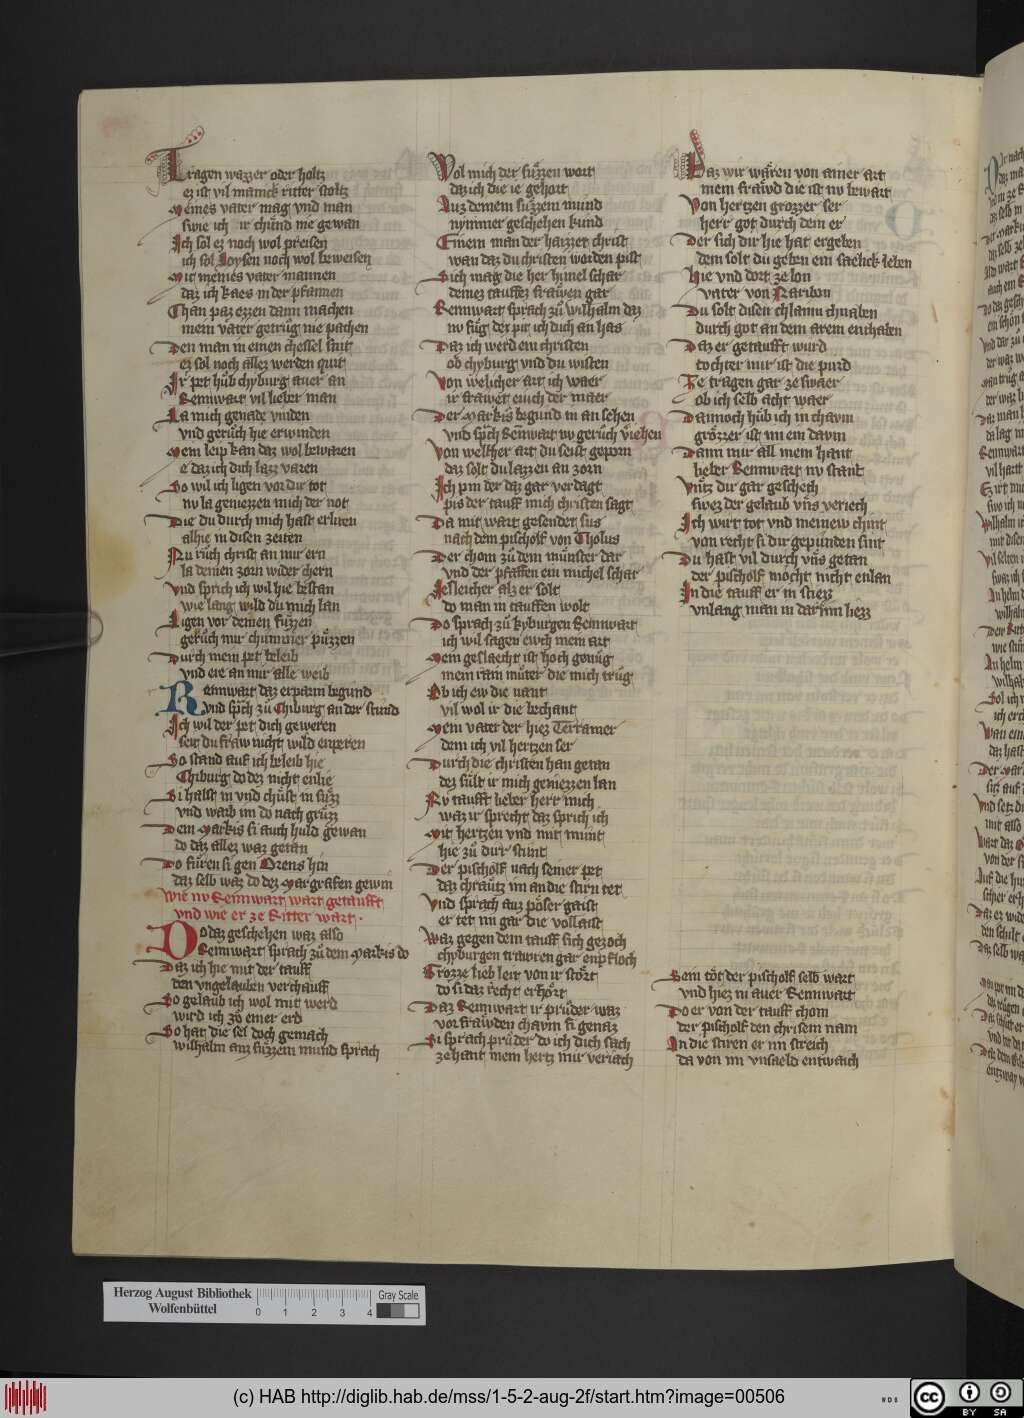 Tragen wazzer oder holtz
ez ist vil manick ritter stoltz
Meines vater mag vnd man
swie ich ir chund nie gewan
Ich sol ez noch wol preisen
ich sol Loysen noch wol beweisen
Mit meines vater mannen
daz ich kaes in der pfannen
Chan paz ezzen dann machen
mein vater getrůg nie pachen
Den man in einen chessel snit
er sol noch allez werden quit
Ir pet hůb chyburg auer an
Rennwart vil lieber man
La mich genade vinden
vnd gerůch hie erwinden
Mein leip kan daz wol bewaren
e daz ich dich lazz varen
So wil ich ligen vor dir tot
nv la geniezzen mich der not
Die du durch mich hast erliten
alhie in disen zeiten
Nu růch christ an mir ern
la deinen zorn wider chern
Vnd sprich ich wil hie bestan
wie lang wild du mich lan
Ligen vor deinen fůzzen
gerůch mir chummer půzzen
Durch mein pet beleib
vnd ere an mir alle weib
Rennwart daz erparm begund
vnd sprch zů Chiburg an der stund
Ich wil der pet dich geweren
seit du fraw nicht wild enperen
So stand auf ich beleib hie
Chiburg do dez nicht enlie
Si halst in vnd chůst in sůzz
vnd warb im do nach grůzz
Dem Markis si auch huld gewan
do daz allez waz getan
Do fůren si gen Orens hin
daz selb waz do dez Margrafen gewin
Wie nv Rennwart wart getaufft
vnd wie er ze Ritter wart.
Do daz geschehen waz also
Rennwart sprach zů dem Markis do
Daz ich hie mit der tauff
den vngelauben verchauff
So gelaub ich wol mit werd
wird ich zů einer erd
So hat die sel doch gemach
wilhalm auz sůzzem mund sprach
Wol mich der sůzzen wort
daz ich die ie gehort
Auz deinem sůzzem mund
nymmer geschehen kund
Einem man der haizzet christ
wan daz du christen worden pist
Dich mag die her himel schar
deinez tauffez frawen gar
Rennwart sprach zů wilhalm daz
nv fůg dez pit ich dich an haz
Daz ich werd ein christen
ob chyburg vnd du wisten
Von welicher art ich waer
ir frawet euch der maer
Der Markis begund in an sehen
vnd sprch Rennwart nv gerůch viehen
Von welcher art du seist geporn
daz solt du lazzen an zorn
Ich pin der daz gar verdagt
pis der tauff mich christen sagt
Da mit wart gesendet sus
nach dem pischolf von Tholus
Der chom zů dem můnster dar
vnd der pfaffen ein michel schar
Iesleicher alz er solt
do man in tauffen wolt
Do sprach zů kyburgen Rennwart
ich wil sagen ewch mein art
Mein geslaecht ist hoch genůg
mein ram můter die mich trůg
Ob ich ew die nant
vil wol ir die bechant
Mein vater der hiez Terramer
dem ich vil hertzen ser
Durch die christen han getan
dez sult ir mich geniezzen lan
Nv taufft lieber herr mich
waz ir sprecht daz sprich ich
Mit hertzen vnd mit munt
hie zů dirr stunt
Der pischolf nach seiner pet
daz chrautz im an die stirn tet
Vnd sprach auz pôser gaist
er tet im gar die vollaist
Waz gegen dem tauff sich gezoch
chyburgen trawren gar enpfloch
Grozze lieb leit von ir stôrt
do si daz recht erhôrt
Daz Rennwart ir průder waz
vor frawden chaum si genaz
Si sprach průder do ich dich sach
zehant mein hertz mir veriach
Daz wir wären von ainer art
mein frawd die ist nv bewart
Von hertzen grozzer ser
herr got durch dein er
Der sich dir hie hat ergeben
dem solt du geben ein saelick leben
Hie vnd dort ze lon
vater von Naribon
Du solt disen chlainn chnaben
durch got an dem arem enthaben
Daz er getaufft wurd
tochter mir ist die purd
Ze tragen gar ze swaer
ob ich selb acht waer
Dannoch hůb ich in chaum
grôzzer ist nu ein daum
Dann mir all mein hant
lieber Rennwart nv stant
Vntz dir gar geschech
swez der gelaub vns veriech
Ich wirt tot vnd meinew chint
von recht si dir gepunden sint
Du hast vil durch vns getan
der pischolf mocht nicht enlan
In die tauff er in stiezz
vnlang man in darinn liezz
Sein tôt der pischolf selb wart
vnd hiez in auer Rennwart
Do er von der tauff chom
der pischolf den chrisem nam
An die stiren er im streich
da von im vnsaeld entwaich
Herzog August Bibliothek
Wolfenbüttel
0 1 2 3 4
Gray Scale
(c) HAB http://diglib.hab.de/mss/1-5-2-aug-2f/start.htm?image=00506
cc BY SA